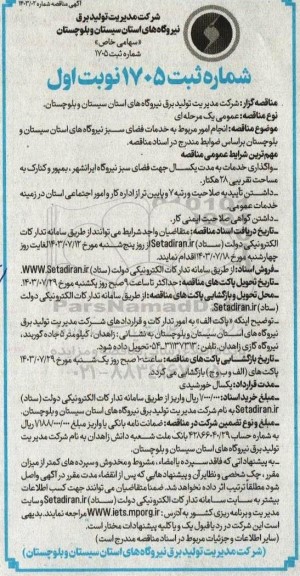 آگهی مناقصه شماره ۱۴۰۳/۰۲
شرکت مدیریت تولید برق
نیروگاه‌های استان سیستان و بلوچستان
«سهامی خاص»
شماره ثبت ۱۷۰۵
شماره ثبت ۱۷۰۵ نوبت اول
مناقصه گزار: شرکت مدیریت تولید برق نیروگاه های استان سیستان و بلوچستان.
نوع مناقصه: عمومی یک مرحله ای
موضوع مناقصه: انجام امور مربوط به خدمات فضای سبز نیروگاه های استان سیستان و
بلوچستان براساس ضوابط مندرج در اسناد مناقصه.
مهم ترین شرایط عمومی مناقصه
ـ واگذاری خدمات به مدت یکسال جهت فضای سبز نیروگاه ایرانشهر، بمپور و کنارک به
مساحت تقریبی ۱۸ هکتار.
ـ داشتن تأیید به صلاحیت ورتبه ۷ و پایین تر از اداره کار و امور اجتماعی استان در زمینه
خدمات عمومی.
ـ داشتن گواهی صلاحیت ایمنی کار.
ـ تاریخ دریافت اسناد مناقصه: متقاضیان واجد شرایط می توانند از طریق سامانه تدارکات
الکترونیکی دولت (ستاد) Setadiran.ir از روز پنج شنبه مورخ ۱۴۰۳/۰۷/۱۲ لغایت روز
چهارشنبه مورخ ۱۴۰۳/۰۷/۱۸ اقدام نمایند.
ـ فروش اسناد: از طریق سامانه تدارکات الکترونیکی دولت (ستاد) WWW.Setadiran.ir.
ـ تاریخ تحویل پاکت های مناقصه: حداکثر تا ساعت ۹ صبح روز یکشنبه مورخ ۱۴۰۳/۰۷/۲۹.
ـ محل تحویل و بازگشایی پاکت های مناقصه: از طریق سامانه تدارکات الکترونیکی دولت
(ستاد) Setadiran.ir.
ـ توضیح اینکه «پاکت الف» به امور تدارکات و قراردادهای شرکت مدیریت تولید برق
نیروگاه های استان سیستان و بلوچستان به نشانی: زاهدان، کیلومتر ۵ جاده گوربند،
نیروگاه گازی زاهدان. تلفن: ۰۵۴ تحویل داده شود.
ـ تاریخ بازگشایی پاکت های مناقصه: ساعت ۱۰ صبح روز یکشنبه مورخ ۱۴۰۳/۰۷/۲۹
پاکت های (الف و ب و ج) بازگشایی می گردد.
ـ مدت قرارداد: یکسال خورشیدی
ـ مبلغ خرید اسناد: ۱/۰۰۰/۰۰۰ ریال واریز از طریق سامانه تدارکات الکترونیکی دولت (ستاد)
Setadiran.ir به نام شرکت مدیریت تولید برق نیروگاه های استان سیستان و بلوچستان.
ـ مبلغ و نوع تضمین شرکت در مناقصه: ضمانت نامه بانکی یا واریز مبلغ ریال
به شماره حساب بانک ملت شعبه دانش زاهدان به نام شرکت مدیریت
تولید برق نیروگاه های استان سیستان و بلوچستان.
ـ به پیشنهاداتی که فاقد سپرده یا امضاء، مشروط و مخدوش و سپرده های کمتر از میزان
مقرر، چک شخصی و نظایر آن و پیشنهادهایی که پس از انقضاء مدت مقرر در آگهی واصل
شود مطلقاً ترتیب اثر داده نخواهد شد. ضمنا متقاضیان می توانند جهت کسب اطلاعات
بیشتر به سایت سامانه تدارکات الکترونیکی دولت (ستاد) Setadiran.ir و سایت
مدیریت و برنامه ریزی کشور به آدرس: WWW.iets.mporg.ir مراجعه نمایند. بدیهی
است این شرکت در رد یا قبول یک و یا کلیه پیشنهادات مختار است.
(سایر اطلاعات و جزئیات مربوط در اسناد مناقصه مندرج است)
(شرکت مدیریت تولید برق نیروگاه های استان سیستان و بلوچستان)